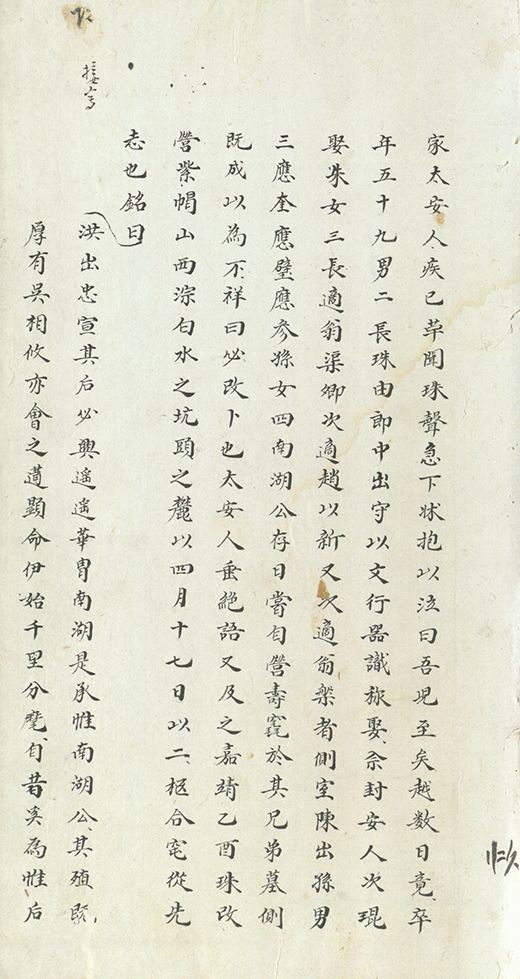 接寫
家太安人疾已革聞珠聲急下牀抱以泣曰吾兒至矣越数日竟卒
年五十九男二長珠由郎中出守以文行器識旅娶佘封安人次琨
娶朱女三長適翁渠卿次適趙以新又次適翁槃者側室陳出孫男
三應奎應璧應参孫女四南湖公存日嘗自營壽竁於其兄弟墓側
既成以為不祥曰必改卜也太安人垂絶語又及之嘉靖乙酉珠改
營紫帽山西淙白水之坑頭之麓以四月十七日以二柩合窀從先
志也銘曰
洪出忠宣其后必興遥遥華冑南湖是承惟南湖公其殖
厚有吳相攸亦會之遘顯命伊始千里分麾自昔奚為惟后